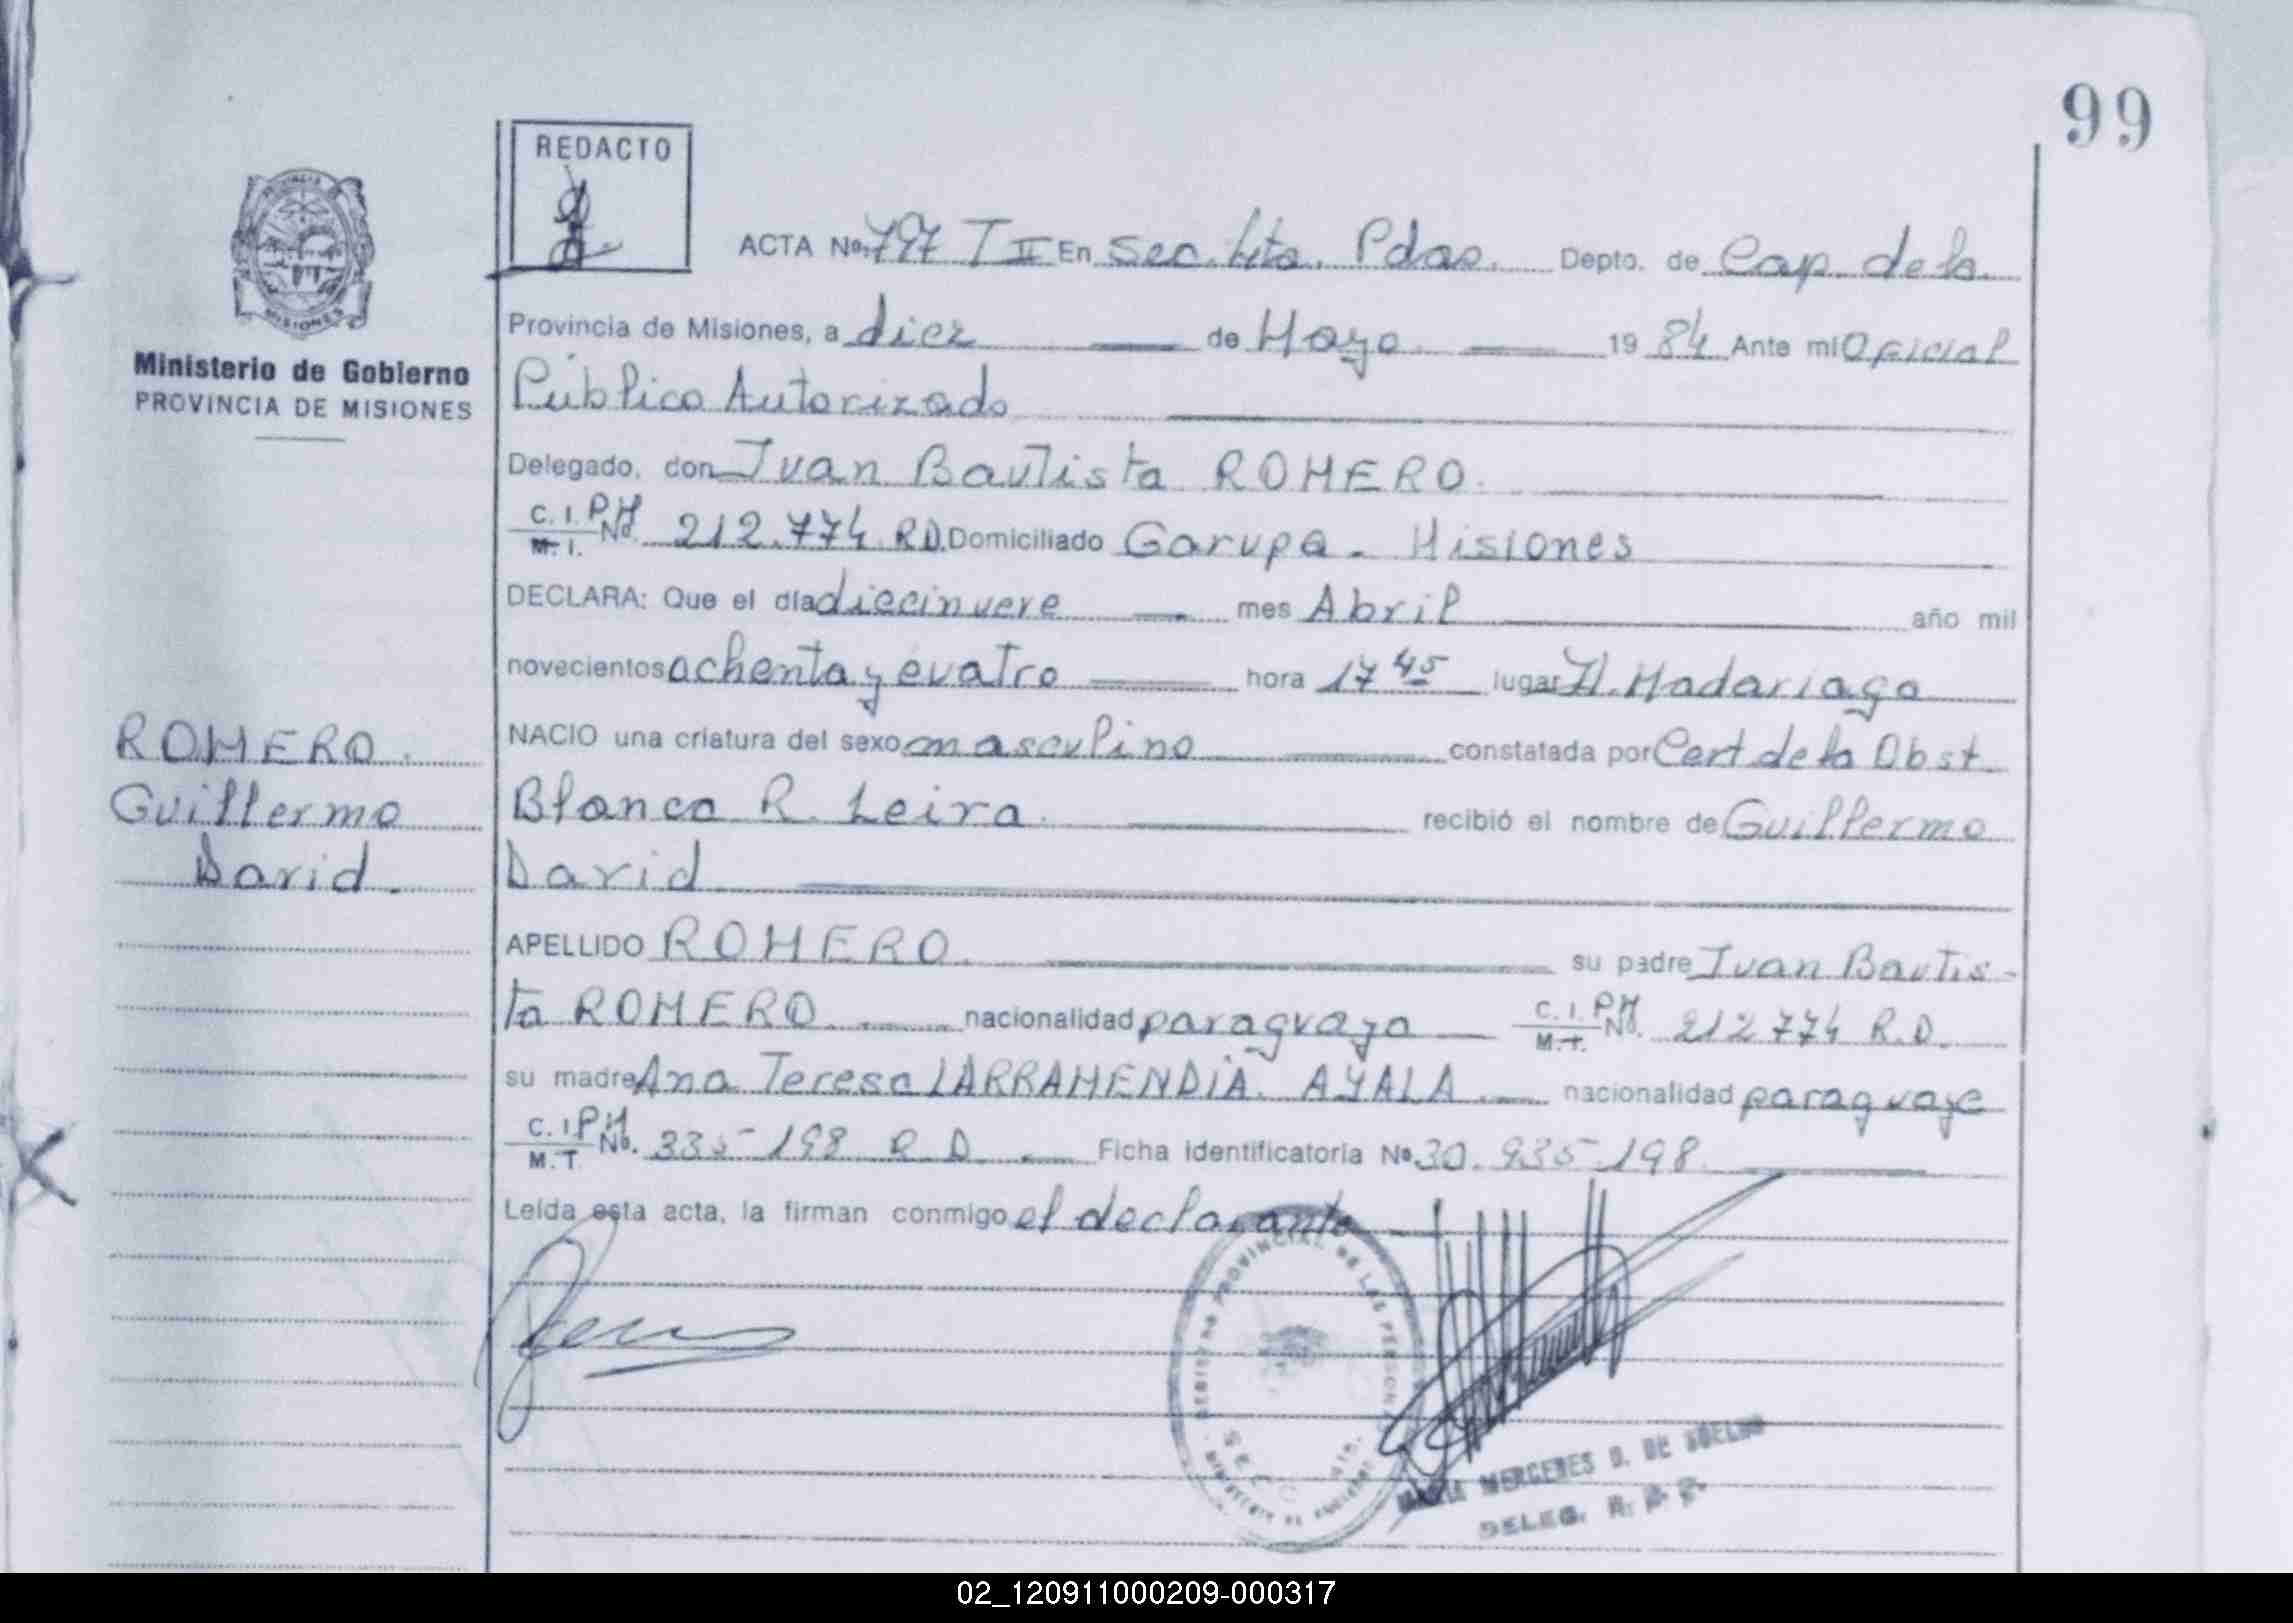 99
REDACTO
ACTA Nº 797 T II En Sec. 4ta. Pdas. Depto. de Cap. de la
Provincia de Misiones, a diez de Mayo 1984 Ante mi Oficial
Ministerio de Gobierno
PROVINCIA DE MISIONES
Público Autorizado
Delegado, don Juan Bautista ROMERO.
C. I. PM
M. I. Nº 212.774 R.D. Domiciliado Garupa - Misiones
DECLARA: Que el día diecinueve mes Abril año mil
novecientos ochenta y cuatro hora 17 45 lugar H. Madariaga
NACIO una criatura del sexo masculino constatada por Cert de la Obst
Blanca R. Leira. recibió el nombre de Guillermo
David
ROMERO.
Guillermo
David.
APELLIDO ROMERO. su padre Juan Bautis-
ta ROMERO nacionalidad paraguaya C. I. PM
M. I. No. 212774 R.D.
su madre Ana Teresa LARRAMENDIA. AYALA nacionalidad paraguaya
C. I. PM
M. I. No. 335-198 R.D. Ficha identificatoria Nº 30.935.198
Leída esta acta, la firman conmigo el declarante
REGISTRO PROVINCIAL DE LAS PERSONAS
MARIA MERCEDES D. DE
DELEG. R. P. P.
02_120911000209-000317